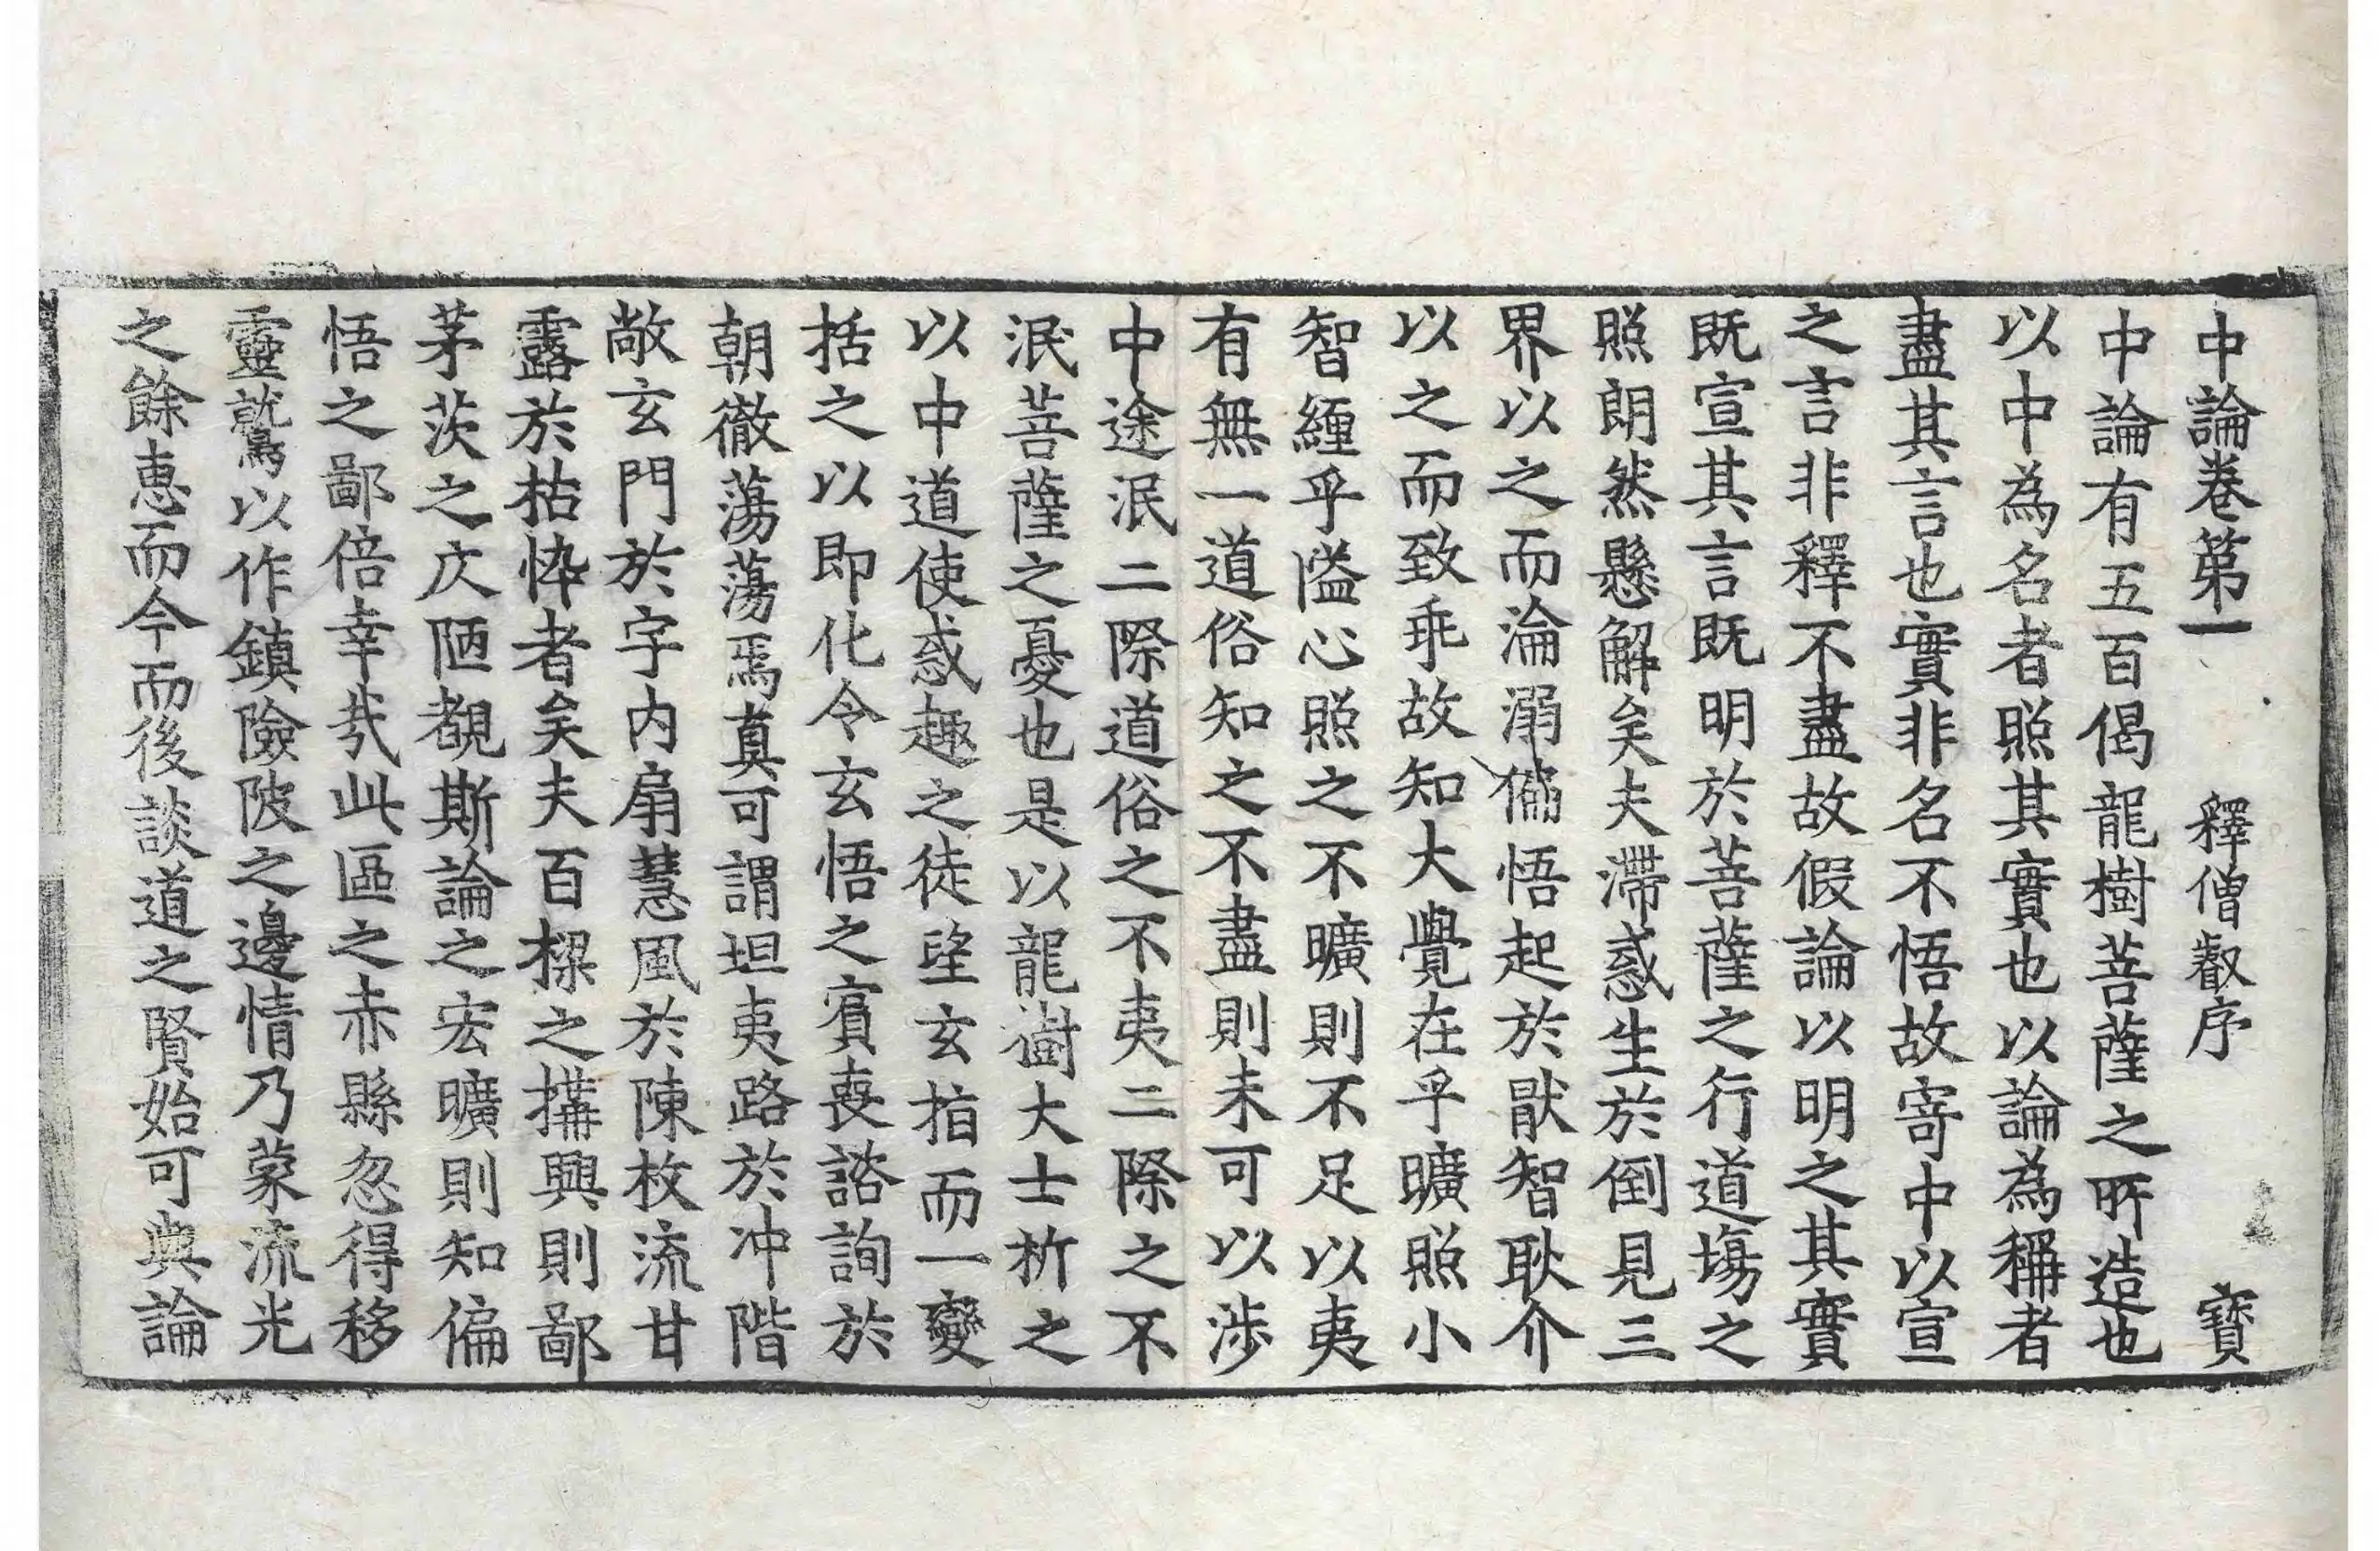 中論卷第一 釋僧叡序 寶
中論有五百偈龍樹菩薩之所造也
以中為名者照其實也以論為稱者
盡其言也實非名不悟故寄中以宣
之言非釋不盡故假論以明之其實
既宣其言既明於菩薩之行道場之
照朗然懸解矣夫滯惑生於倒見三
界以之而淪溺偏悟起於猒智耿介
以之而致乖故知大覺在乎曠照小
智纏乎隘心照之不曠則不足以夷
有無一道俗知之不盡則未可以涉
中途泯二際道俗之不夷二際之不
泯菩薩之憂也是以龍樹大士析之
以中道使惑趣之徒望玄指而一變
括之以即化令玄悟之賓喪諮詢於
朝徹蕩蕩焉真可謂坦夷路於冲階
敞玄門於宇內扇慧風於陳枚流甘
露於枯悴者矣夫百樑之搆興則鄙
茅茨之仄陋覩斯論之宏曠則知偏
悟之鄙倍幸哉此區之赤縣忽得移
靈鷲以作鎮險陂之邊情乃蒙流光
之餘惠而今而後談道之賢始可與論